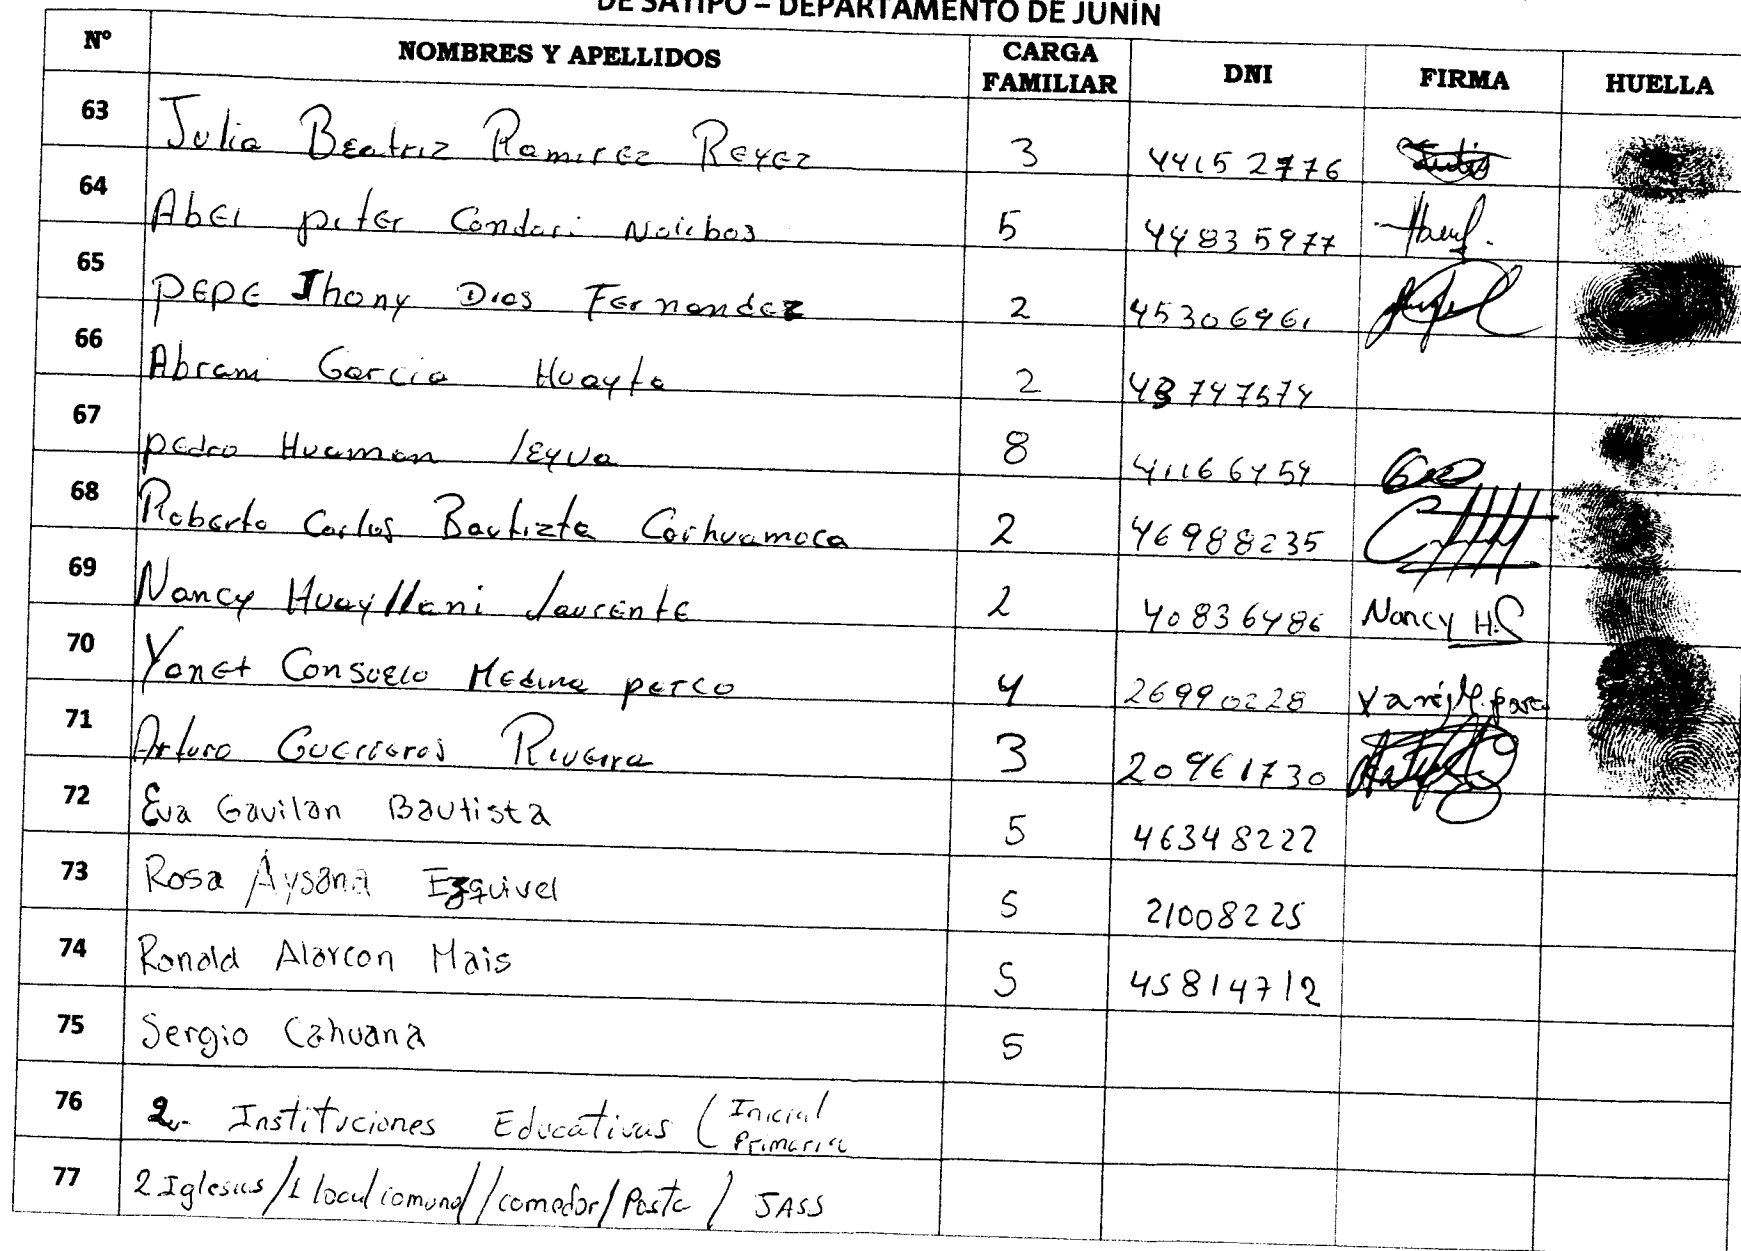 DE SATIPO – DEPARTAMENTO DE JUNÍN
Nº NOMBRES Y APELLIDOS CARGA FAMILIAR DNI FIRMA HUELLA
63 Julia Beatriz Ramirez Reyez 3 44152776
64 Abel piter Condori Nalcbos 5 44835977
65 PEPE Jhony Dios Fernandez 2 45306961
66 Abram Garcia Huayta 2 43747574
67 pedro Huaman leyva 8 41166459
68 Roberto Carlos Bautizta Carhuamaca 2 46988235
69 Nancy Huayllani laurente 2 40836486 Nancy H.
70 Yanet Consuelo Medina parco 4 26990228
71 Arturo Guerreros Riveira 3 20961730
72 Eva Gavilan Bautista 5 46348222
73 Rosa Aysana Ezquivel 5 21008225
74 Ronald Alarcon Mais 5 45814712
75 Sergio Cahuana 5
76 2.- Instituciones Educativas ( Inicial
Primaria
77 2 Iglesias / 1 local comunal / comedor / Posta / JASS